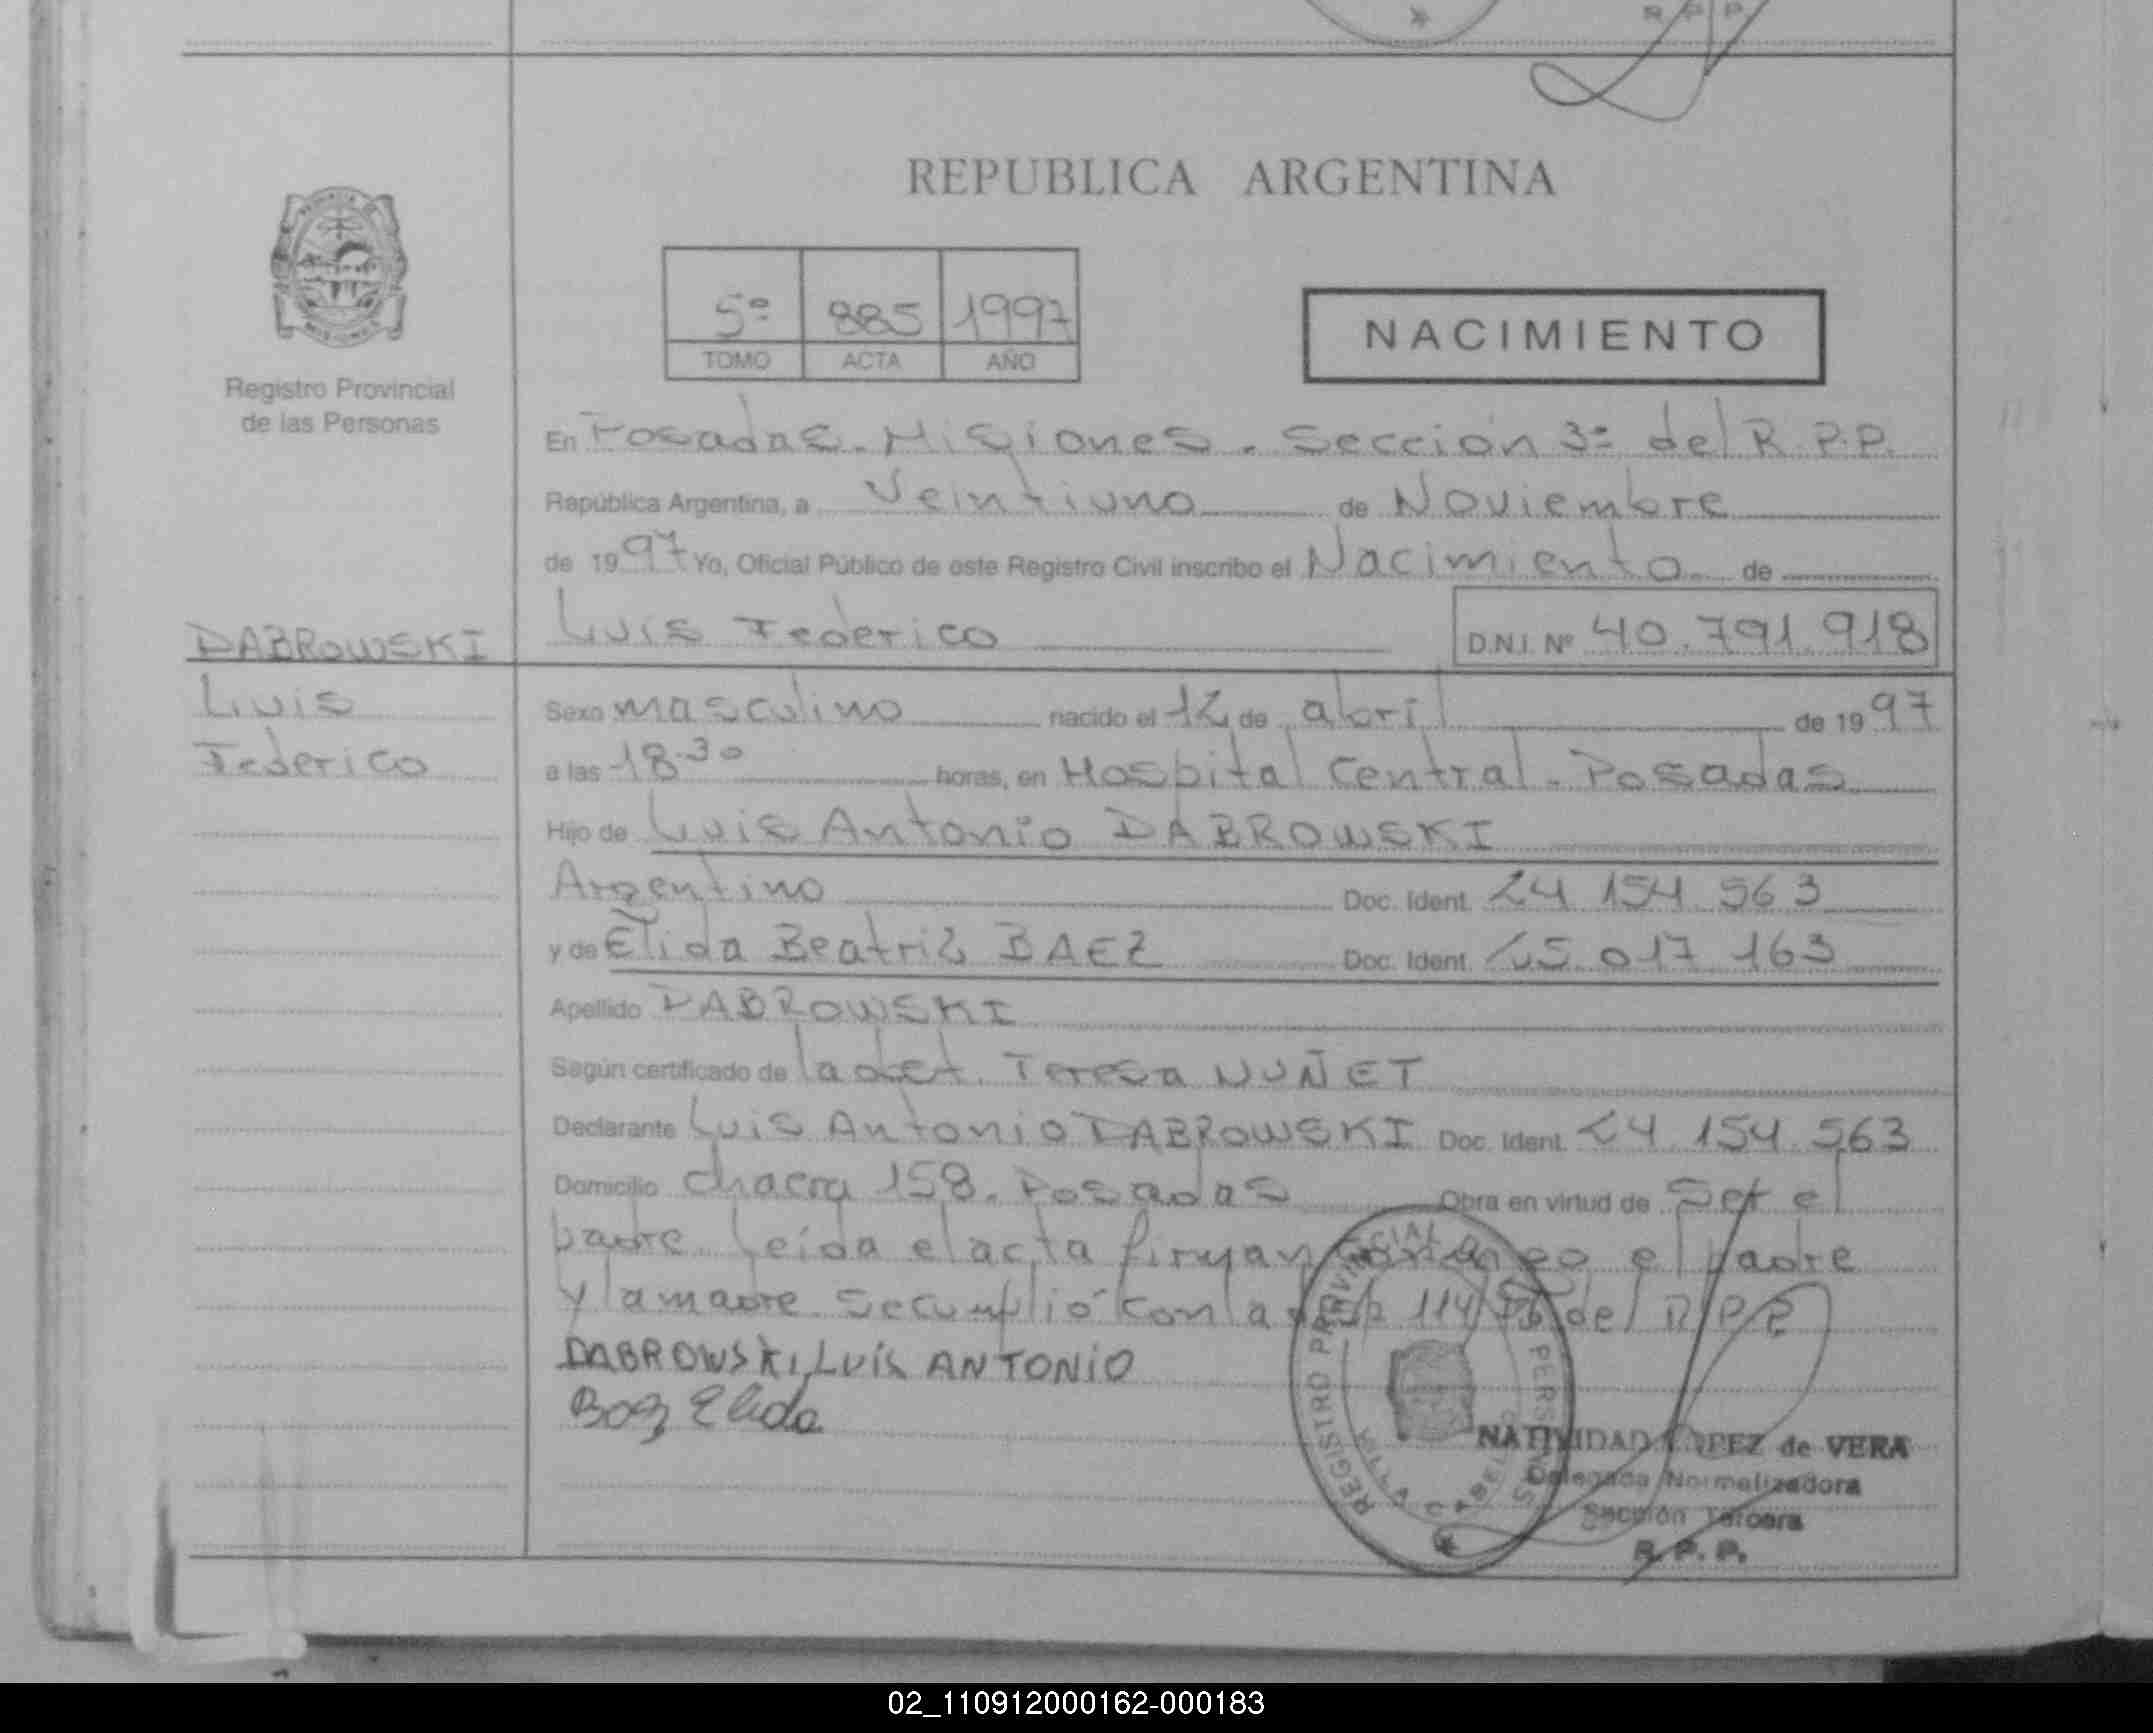 R P P
REPUBLICA ARGENTINA
5º 885 1997
TOMO ACTA AÑO
NACIMIENTO
Registro Provincial
de las Personas
En Posadas - Misiones - Sección 3º del R.P.P.
República Argentina, a Veintiuno de Noviembre
de 1997 Yo, Oficial Público de este Registro Civil inscribo el Nacimiento de
DABROWSKI Luis Federico D.N.I. Nº 40.791.918
Luis
Federico
Sexo masculino nacido el 12 de abril de 1997
a las 18.30 horas, en Hospital Central - Posadas
Hijo de Luis Antonio DABROWSKI
Argentino Doc. Ident. 24 154 563
y de Elida Beatriz BAEZ Doc. Ident. 25 017 163
Apellido DABROWSKI
Según certificado de la obst. Teresa NUÑEZ
Declarante Luis Antonio DABROWSKI Doc. Ident. 24 154 563
Domicilio chacra 158. Posadas Obra en virtud de ser el
padre. Leída el acta firman el padre
y la madre. Se cumplió con la 114 del R.P.P.
DABROWSKI, LUIS ANTONIO
Baez Elida
REGISTRO PROVINCIAL PERSONAS
VILLA CABELLO
NATIVIDAD LOPEZ de VERA
Delegada Normalizadora
Sección Tercera
R. P. P.
02_110912000162-000183